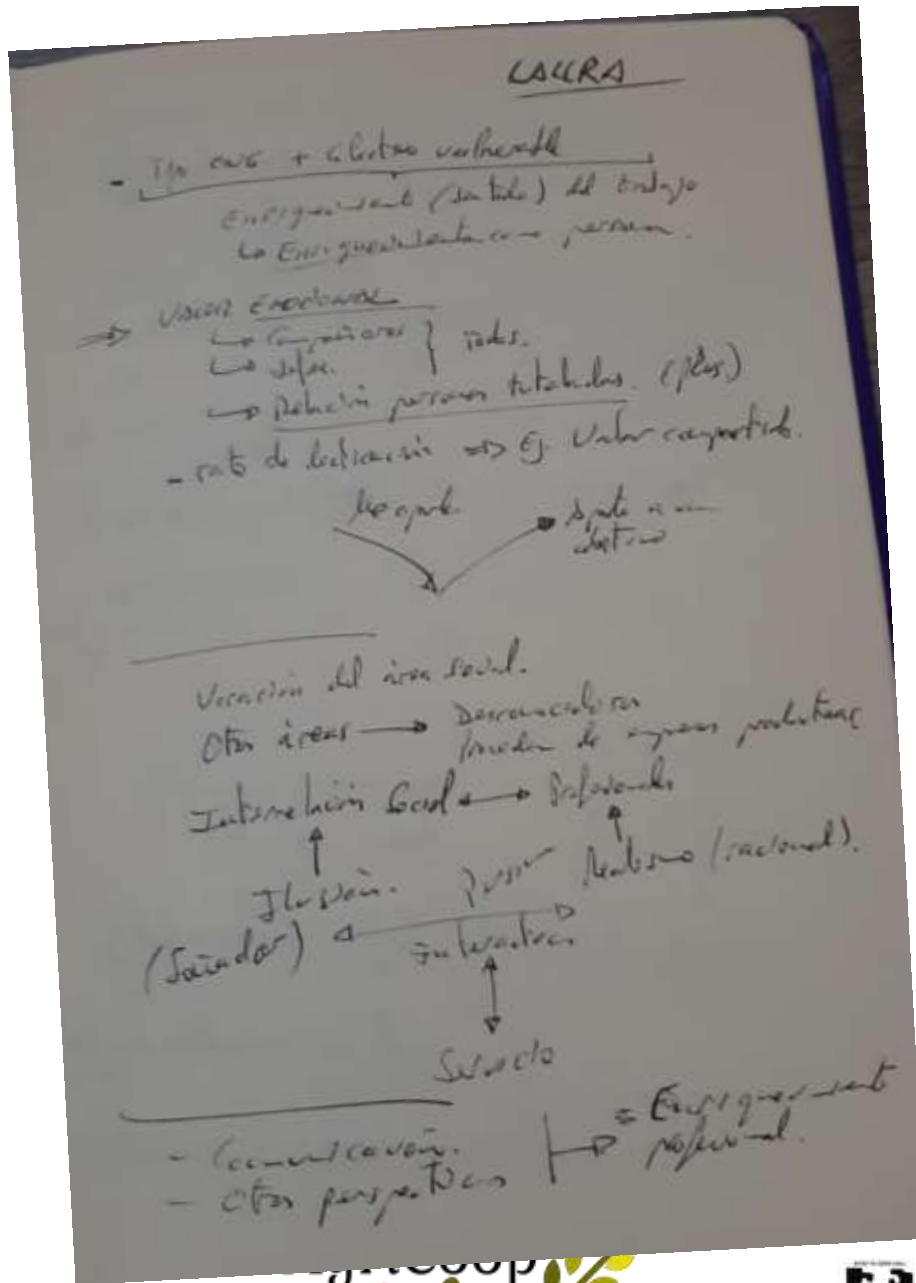 LAURA
- Tipo ONG + colectivo vulnerable
Enriquecimiento (sentido) del trabajo
↳ Enriquecimiento como persona.
⇒ VALOR EMOCIONAL
↳ Compañeros
↳ Jefes. } todos.
→ Relación personas tuteladas. (plus)
- rato de dedicación ⇒ Ej. Valor compartido.
Me aporta. Aporto a un
colectivo
Vocación del área social.
Otras áreas → Desconocedoras
Proceden de empresas productivas
Interrelación Social ↔ Profesionales
Ilusión. Realismo (racional).
(Soñador)
Servicio
- Comunicación.
- Otras perspectivas = Enriquecimiento
profesional.